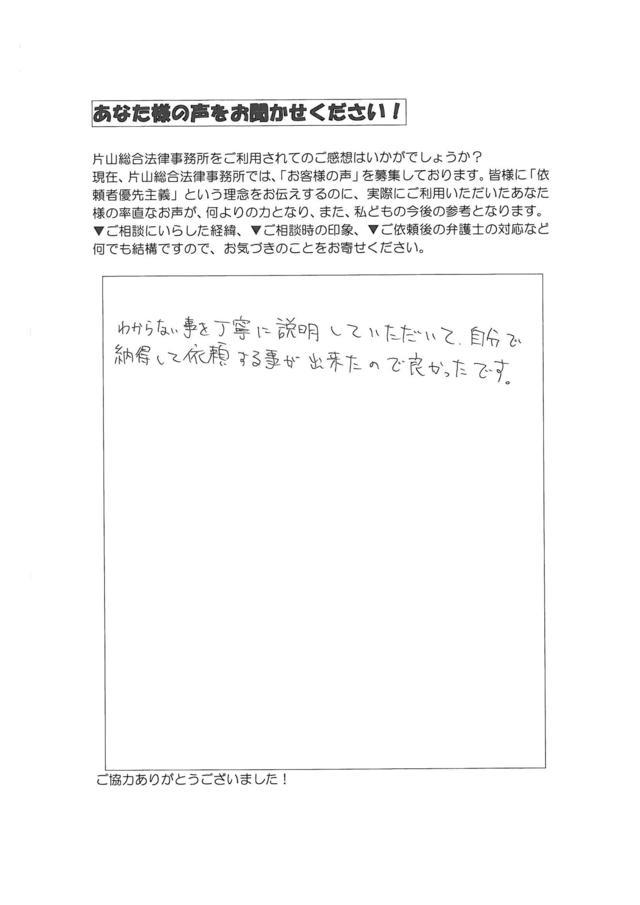 あなた様の声をお聞かせください！
片山総合法律事務所をご利用されてのご感想はいかがでしょうか？
現在、片山総合法律事務所では、「お客様の声」を募集しております。皆様に「依
頼者優先主義」という理念をお伝えするのに、実際にご利用いただいたあなた
様の率直なお声が、何よりの力となり、また、私どもの今後の参考となります。
▼ご相談にいらした経緯、▼ご相談時の印象、▼ご依頼後の弁護士の対応など
何でも結構ですので、お気づきのことをお寄せください。
わからない事を丁寧に説明していただいて、自分で
納得して依頼する事が出来たので良かったです。
ご協力ありがとうございました！